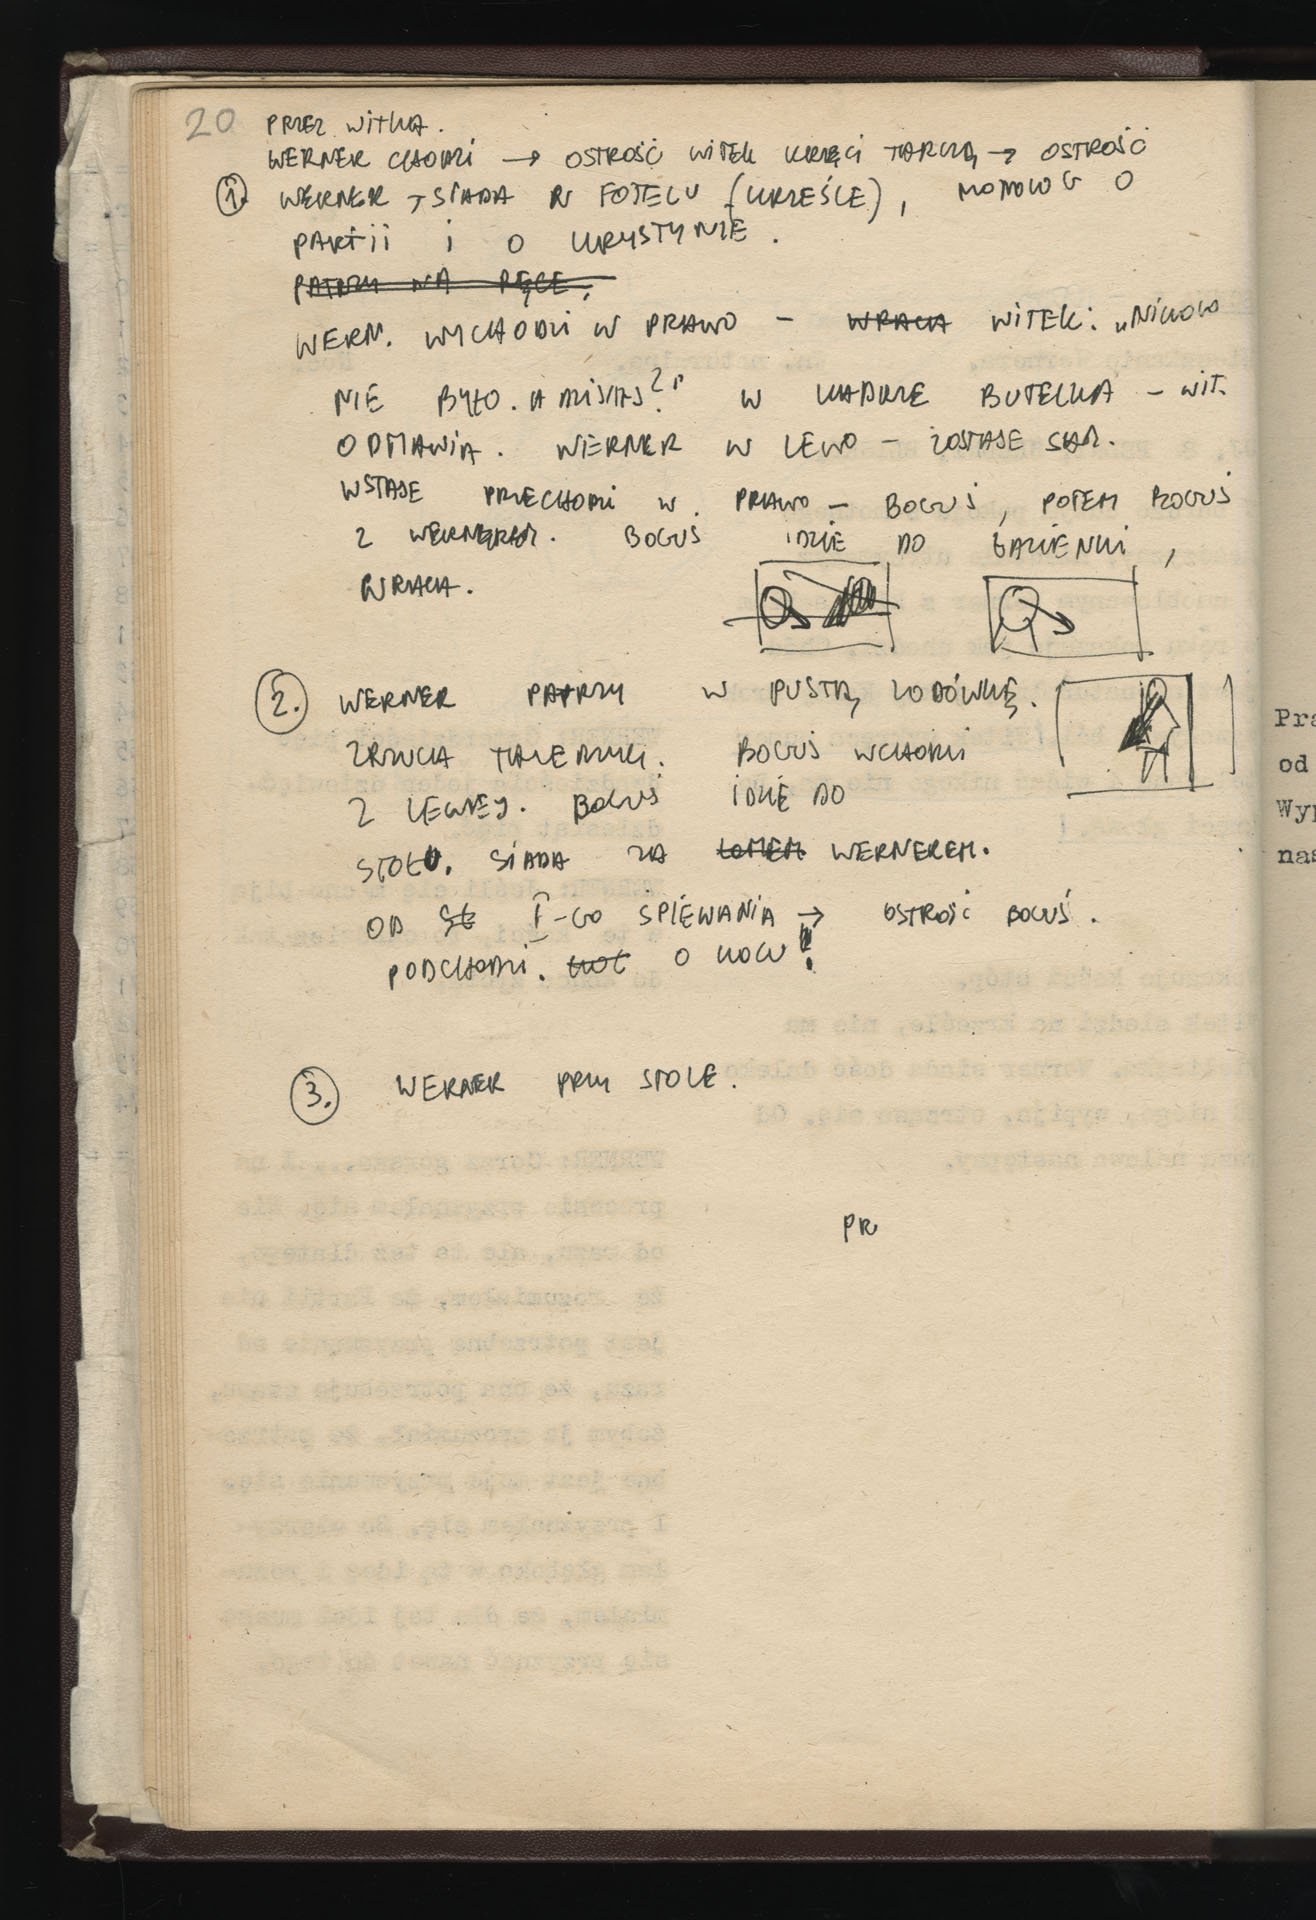 20
PRZEZ WITKA.
WERNER CHODZI → OSTROŚĆ WITEK KRĘCI TARCZĄ → OSTROŚĆ
1. WERNER → SIADA W FOTELU (KRZEŚLE), MONOLOG O
PARTII I O KRYSTYNIE.
PATRZY NA RĘCE.
WERN. WYCHODZI W PRAWO – WRACA WITEK: „NIKOGO
NIE BYŁO. A DZISIAJ?" W KADRZE BUTELKA – WIT.
ODMAWIA. WERNER W LEWO – ZOSTAJE SAM.
WSTAJE PRZECHODZI W PRAWO – BOGUŚ, POTEM BOGUŚ
Z WERNEREM. BOGUŚ IDZIE DO ŁAZIENKI,
WRACA.
2. WERNER PATRZY W PUSTĄ LODÓWKĘ.
ZRZUCA TALERZYK. BOGUŚ WCHODZI
Z LEWEJ. BOGUŚ IDZIE DO
STOŁU. SIADA ZA WERNEREM.
OD I-GO ŚPIEWANIA → OSTROŚĆ BOGUŚ.
PODCHODZI. KOŁ O KOCU!
3. WERNER PRZY STOLE.
PR
Pra
od
Wyp
nas